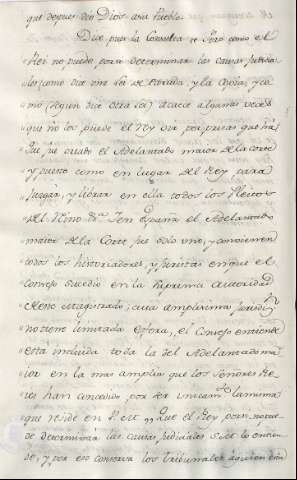 que despues dio Dios a su Pueblo.
Dice pues la Consulta se hizo como el
Rei no puede por si determinar las causas judicia-
les como dice una Lei de Partida, y la
mo (segun dice otra Lei) acaece algunas veces
que no los puede el Rey oir por priesas que ha
fue creado el Adelantado maior de la Corte
y puesto como en lugar del Rey para
juzgar, y librar en ella todos los Pleitos
del Reino. En España el Adelantado
maior de la Corte fue solo uno, y convienen
todos los historiadores, y Juristas en que el
Consejo sucedio en la Suprema autoridad
de este Magistrado, cuia amplisima jurisdicn
no tiene limitada esfera, el Consejo entiende
está incluida toda la del Adelantado ma-
ior en la mas amplia que los Señores Re-
yes han concedido por ser inmediata la misma
que reside en el Rei Que el Rey por si no pue-
de determinar las causas judiciales S.M. lo entien-
de, y por eso conserva los Tribunales